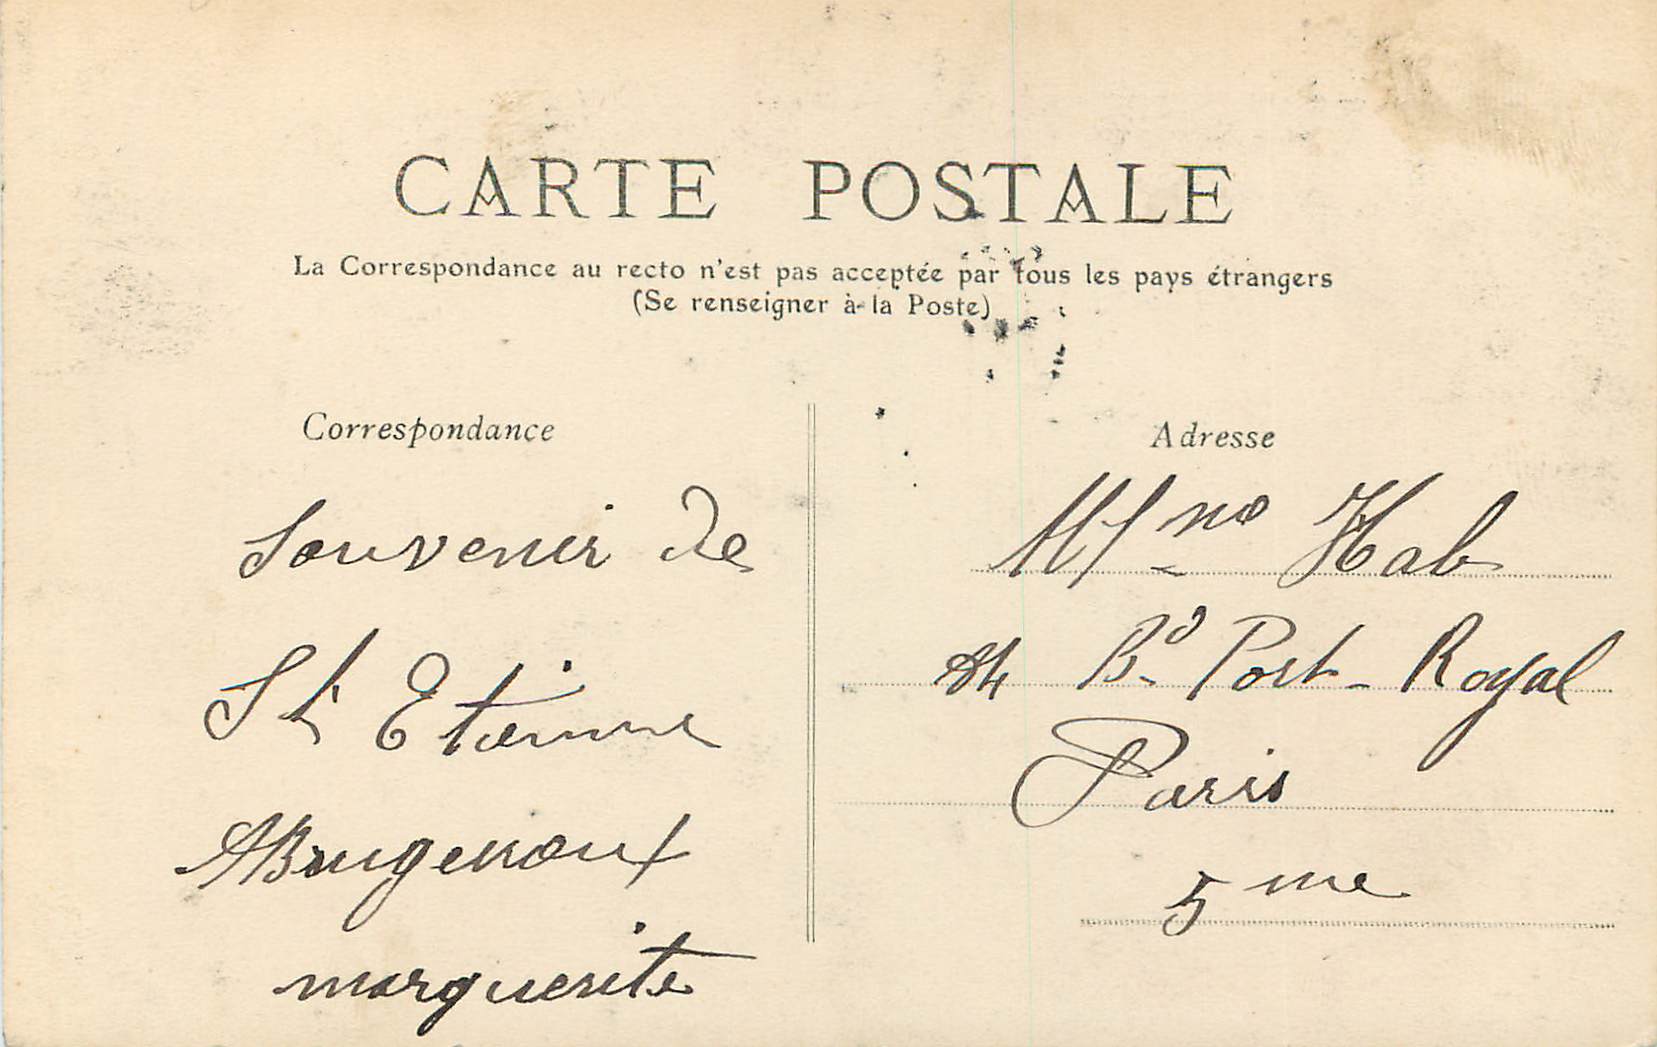 CARTE POSTALE
La Correspondance au recto n'est pas acceptée par tous les pays étrangers
(Se renseigner à la Poste)
Correspondance
Souvenir de
St Etienne
marguerite
Adresse
Mme Hab
84 Bd Port-Royal
Paris
5me